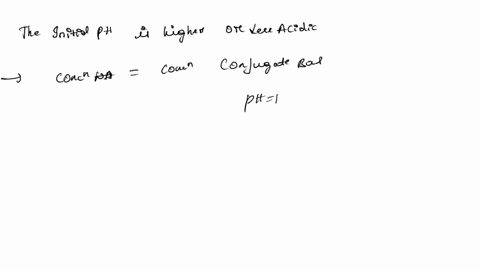 The Initial PH is higher or less Acidic
→ concn = concn Conjugate Bas
pH=1